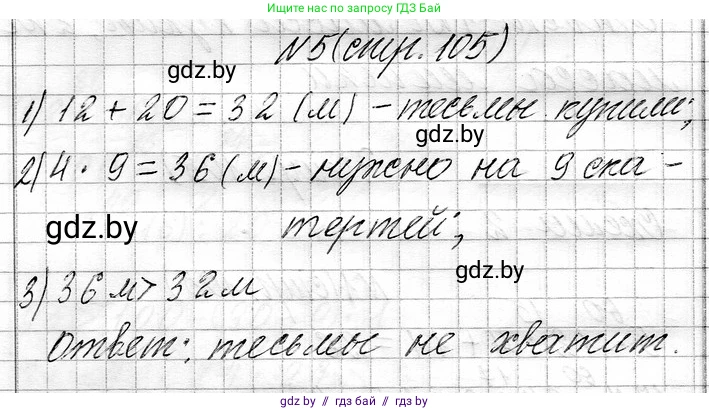 Ищите нас в поиске: ГДЗ Бай
N5 (стр. 105)
gdz.by
1) 12 + 20 = 32 (м) - тесьмы купили;
gdz.by
2) 4 · 9 = 36 (м) - нужно на 9 ска-
gdz.by
тертей;
gdz.by
3) 36 м > 32 м
Ответ: тесьмы не хватит.
gdz.by // гдз бай // gdz.by